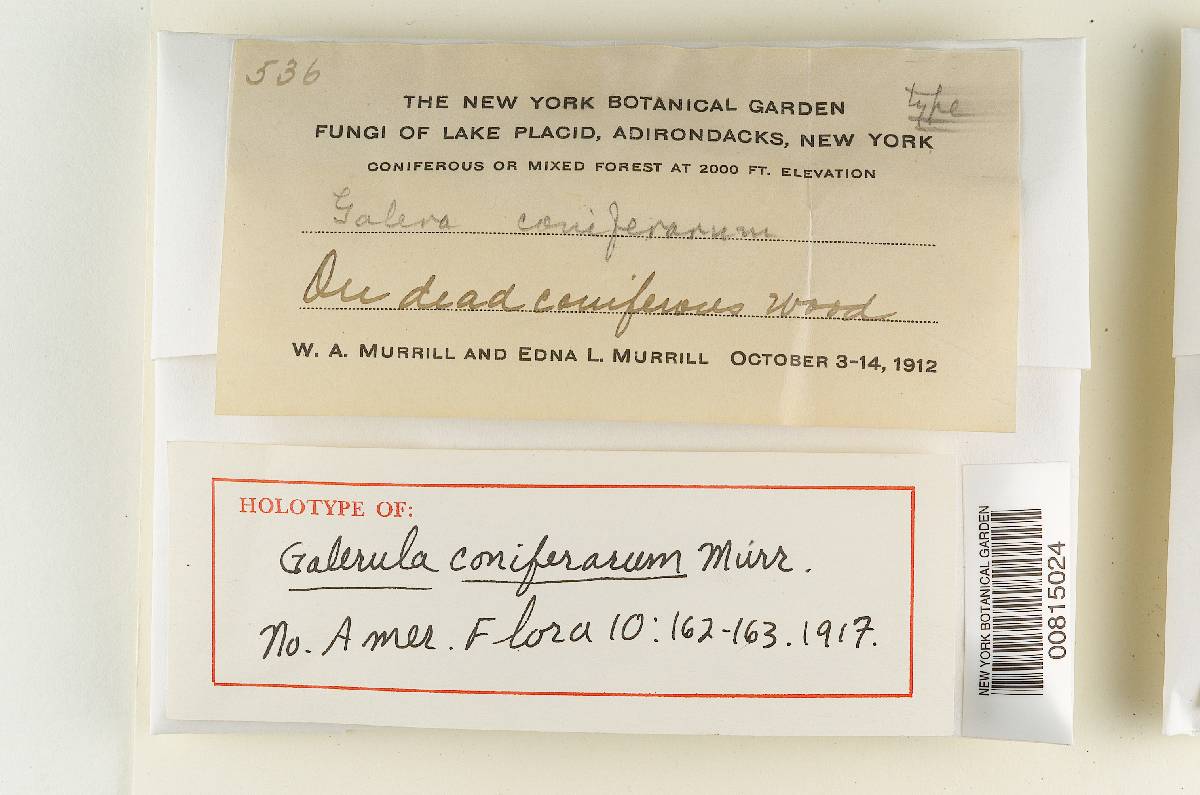 536
type
THE NEW YORK BOTANICAL GARDEN
FUNGI OF LAKE PLACID, ADIRONDACKS, NEW YORK
CONIFEROUS OR MIXED FOREST AT 2000 FT. ELEVATION
Galera coniferarum
On dead coniferous wood
W. A. MURRILL AND EDNA L. MURRILL OCTOBER 3-14, 1912
HOLOTYPE OF:
Galerula coniferarum Murr.
No. Amer. Flora 10: 162-163. 1917.
NEW YORK BOTANICAL GARDEN
00815024